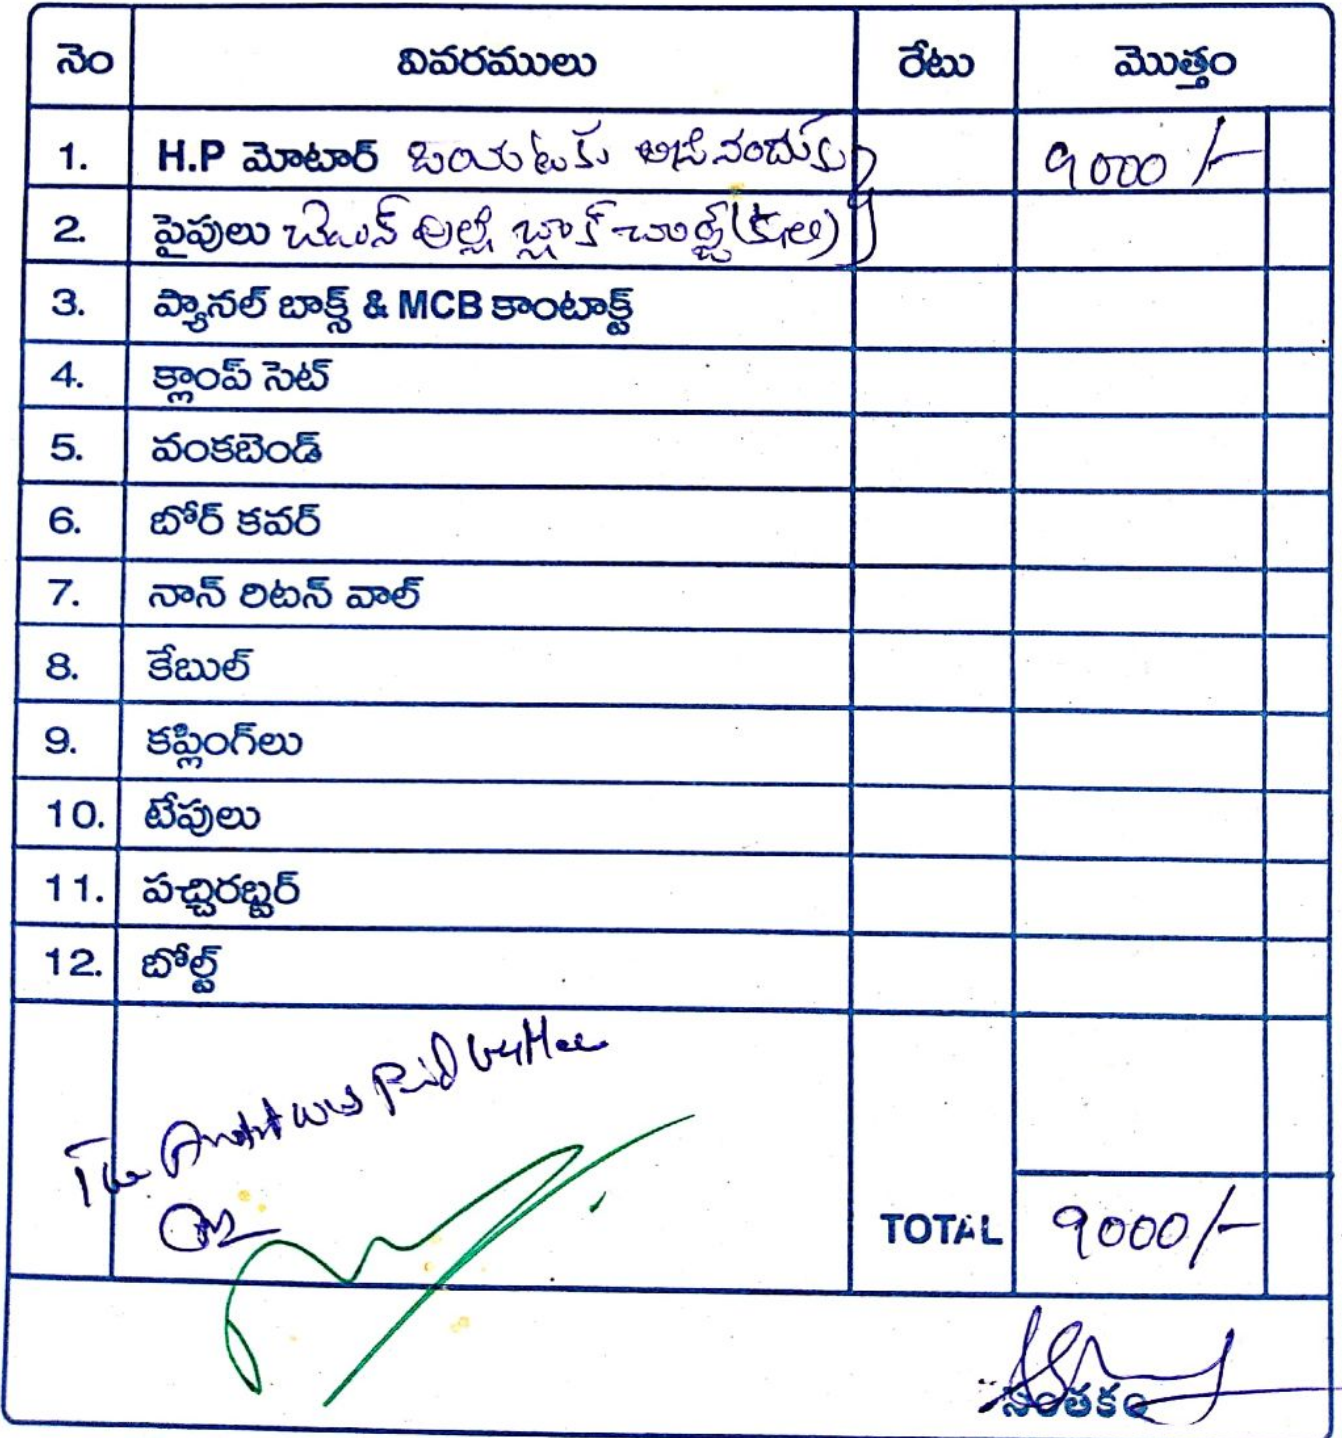 నెం వివరములు రేటు మొత్తం
1. H.P మోటార్ బయటకు 9000/-
2. పైపులు బ్లాక్
3. ప్యానల్ బాక్స్ & MCB కాంటాక్ట్
4. క్లాంప్ సెట్
5. వంకబెండ్
6. బోర్ కవర్
7. నాన్ రిటన్ వాల్
8. కేబుల్
9. కప్లింగ్‌లు
10. టేపులు
11. పచ్చిరబ్బర్
12. బోల్ట్
The was Paid by
TOTAL 9000/-
సంతకం